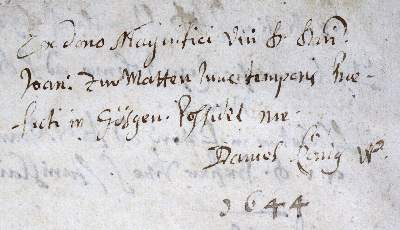 Ex dono Magnifici Viri D. Dni
Joan: Zur Matten tunc temporis Prae-
-fecti in Gösgen. Possidet me
Daniel König
1644